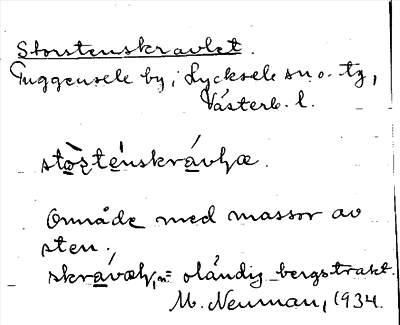 Storstenskravlet.
Tuggensele by, i Lycksele sn o. tg,
Västerb. l.
Område med massor av
sten.
oländig bergstrakt.
M. Neuman, 1934.